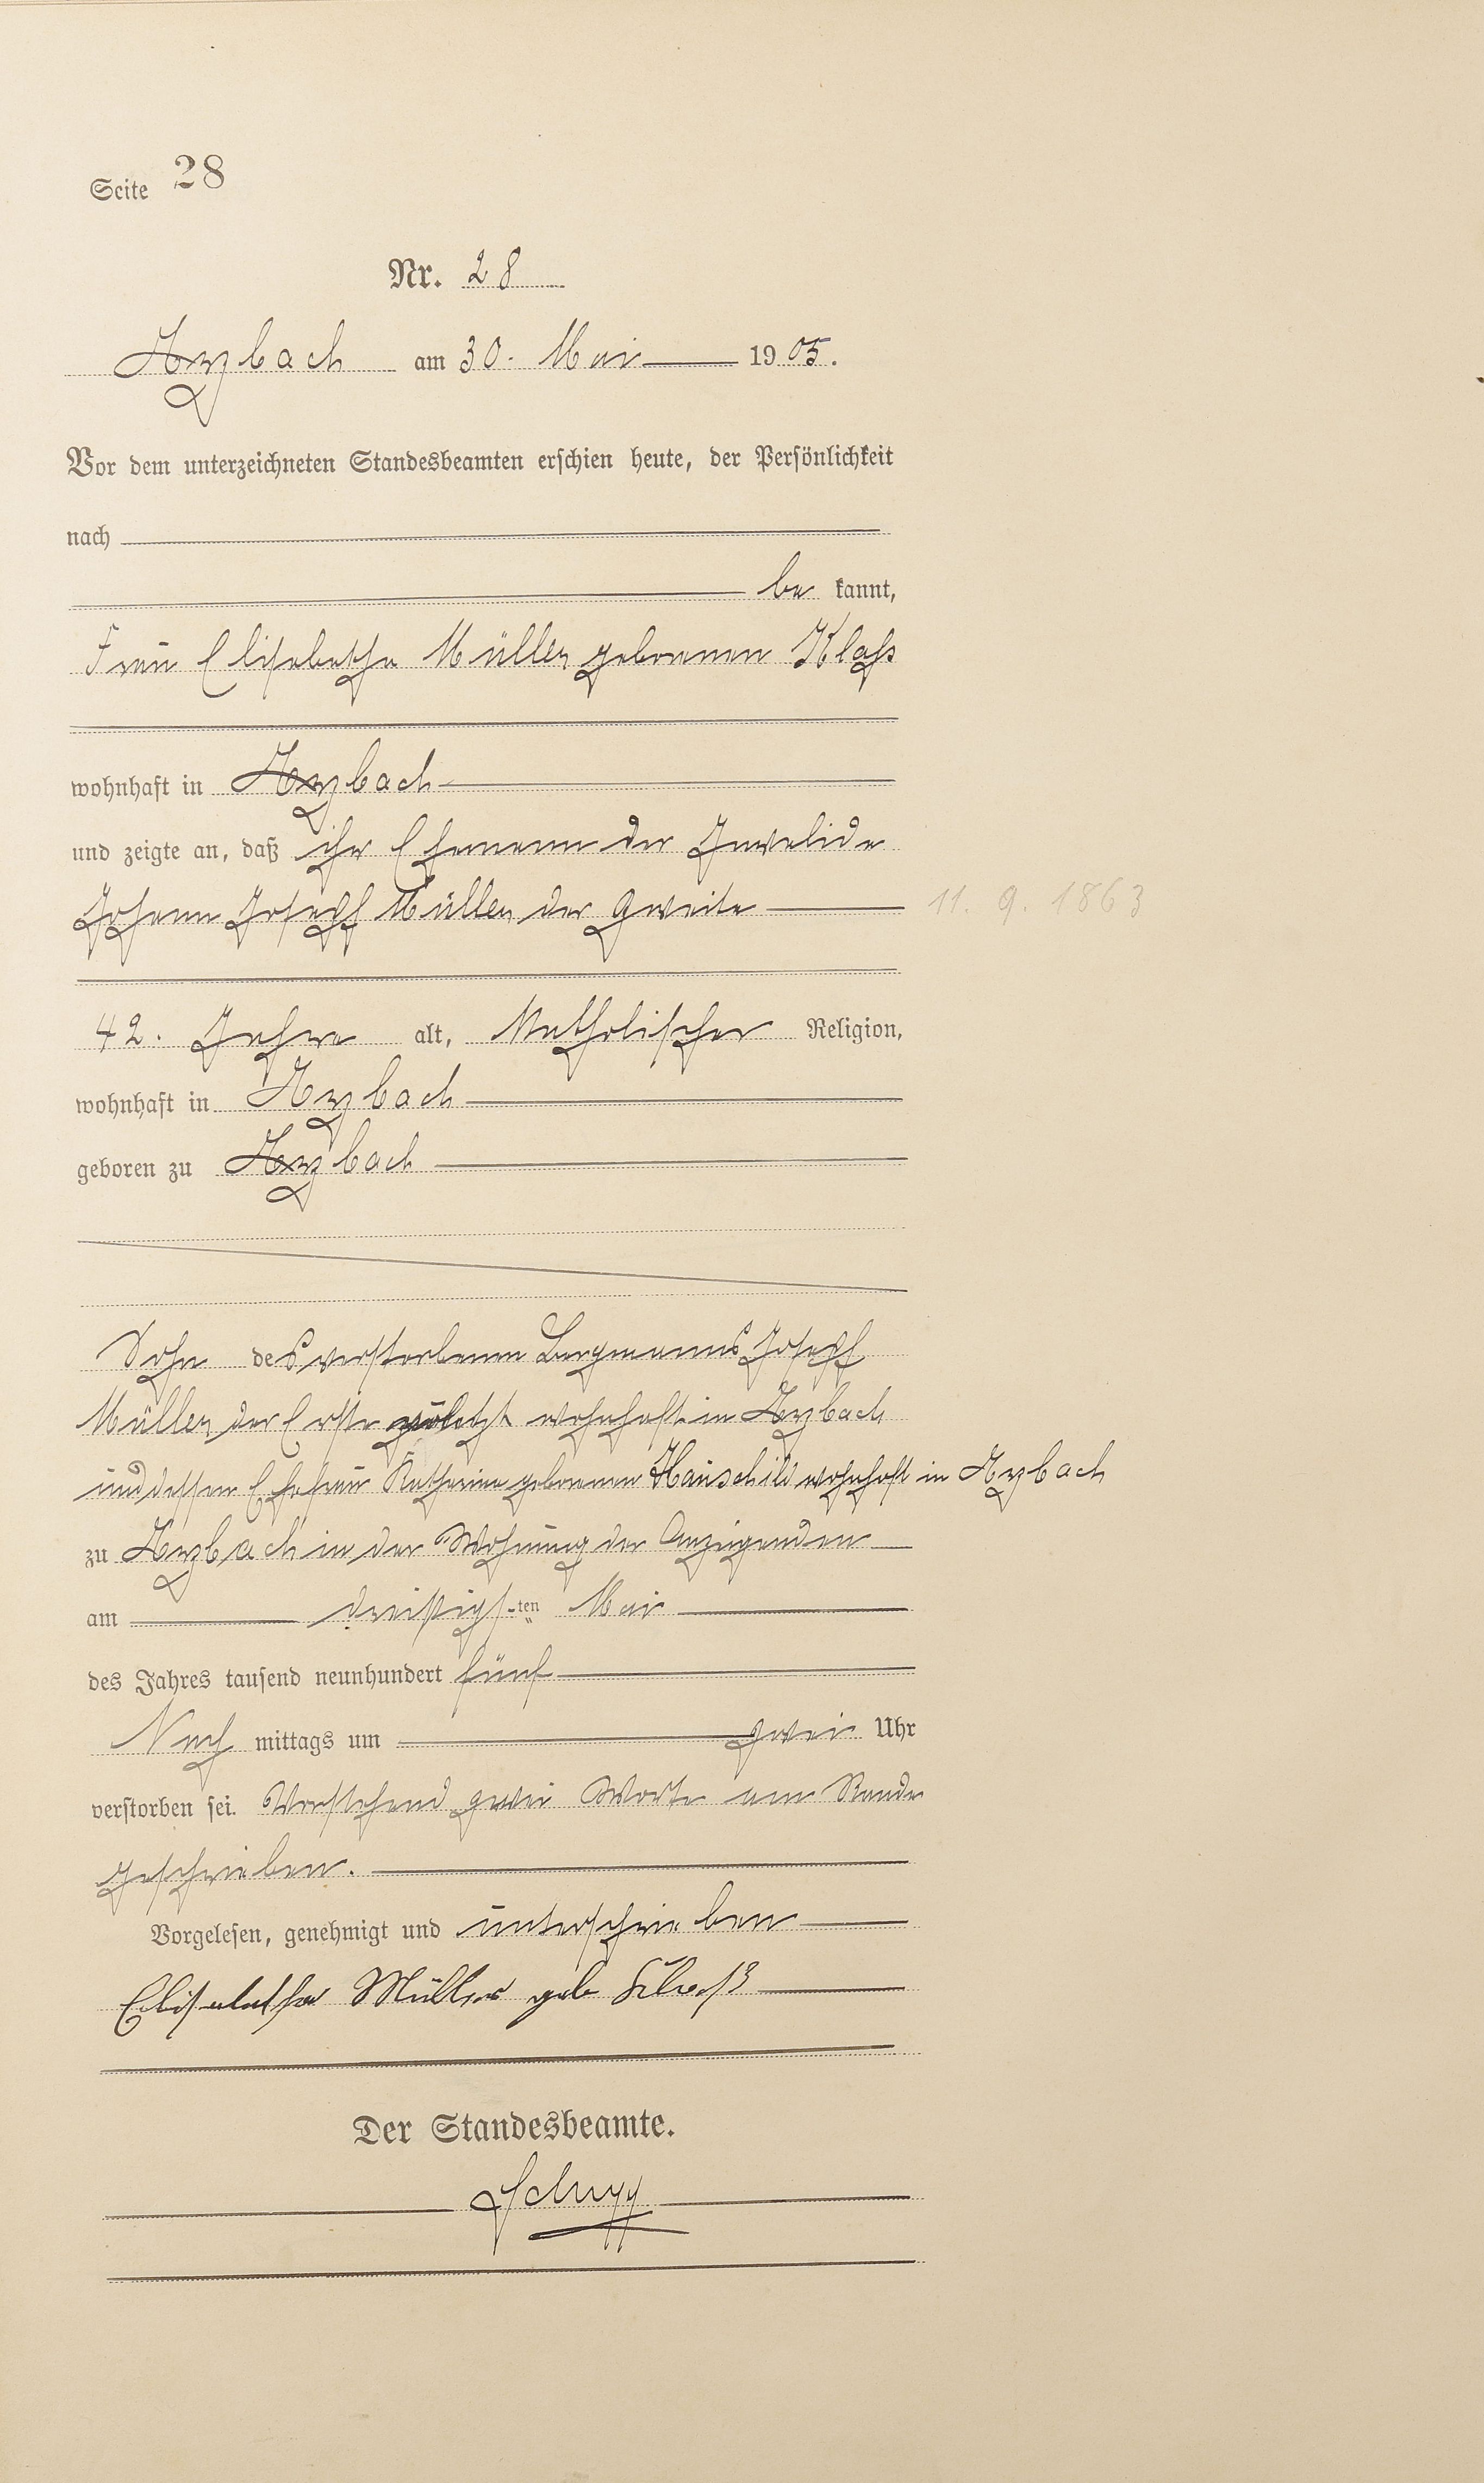 Seite 28
Nr. 28
Arzbach am 30. Mai 1905.
Vor dem unterzeichneten Standesbeamten erschien heute, der Persönlichkeit
nach
be kannt,
Frau Elisabetha Müller geborenen Klaß
wohnhaft in Arzbach
und zeigte an, daß ihr Ehemann der Invalide
Johann Joseph Müller der Zweite 11. 9. 1863
42. Jahre alt, Katholischer Religion,
wohnhaft in Arzbach
geboren zu Arzbach
Sohn des verstorbenen Bergmanns Joseph
Müller der Erste zuletzt wohnhaft in Arzbach
und dessen Ehefrau Katharina geborenen Hauschild wohnhaft in Arzbach
zu Arzbach in der Wohnung der Anzeigenden
am dreißigsten Mai
des Jahres tausend neunhundert fünf
Nach mittags um zwei Uhr
verstorben sei. Vorstehend zwei Worte am Rande
geschrieben.
Vorgelesen, genehmigt und unterschrieben
Elisabetha Müller geb Klaß
Der Standesbeamte.